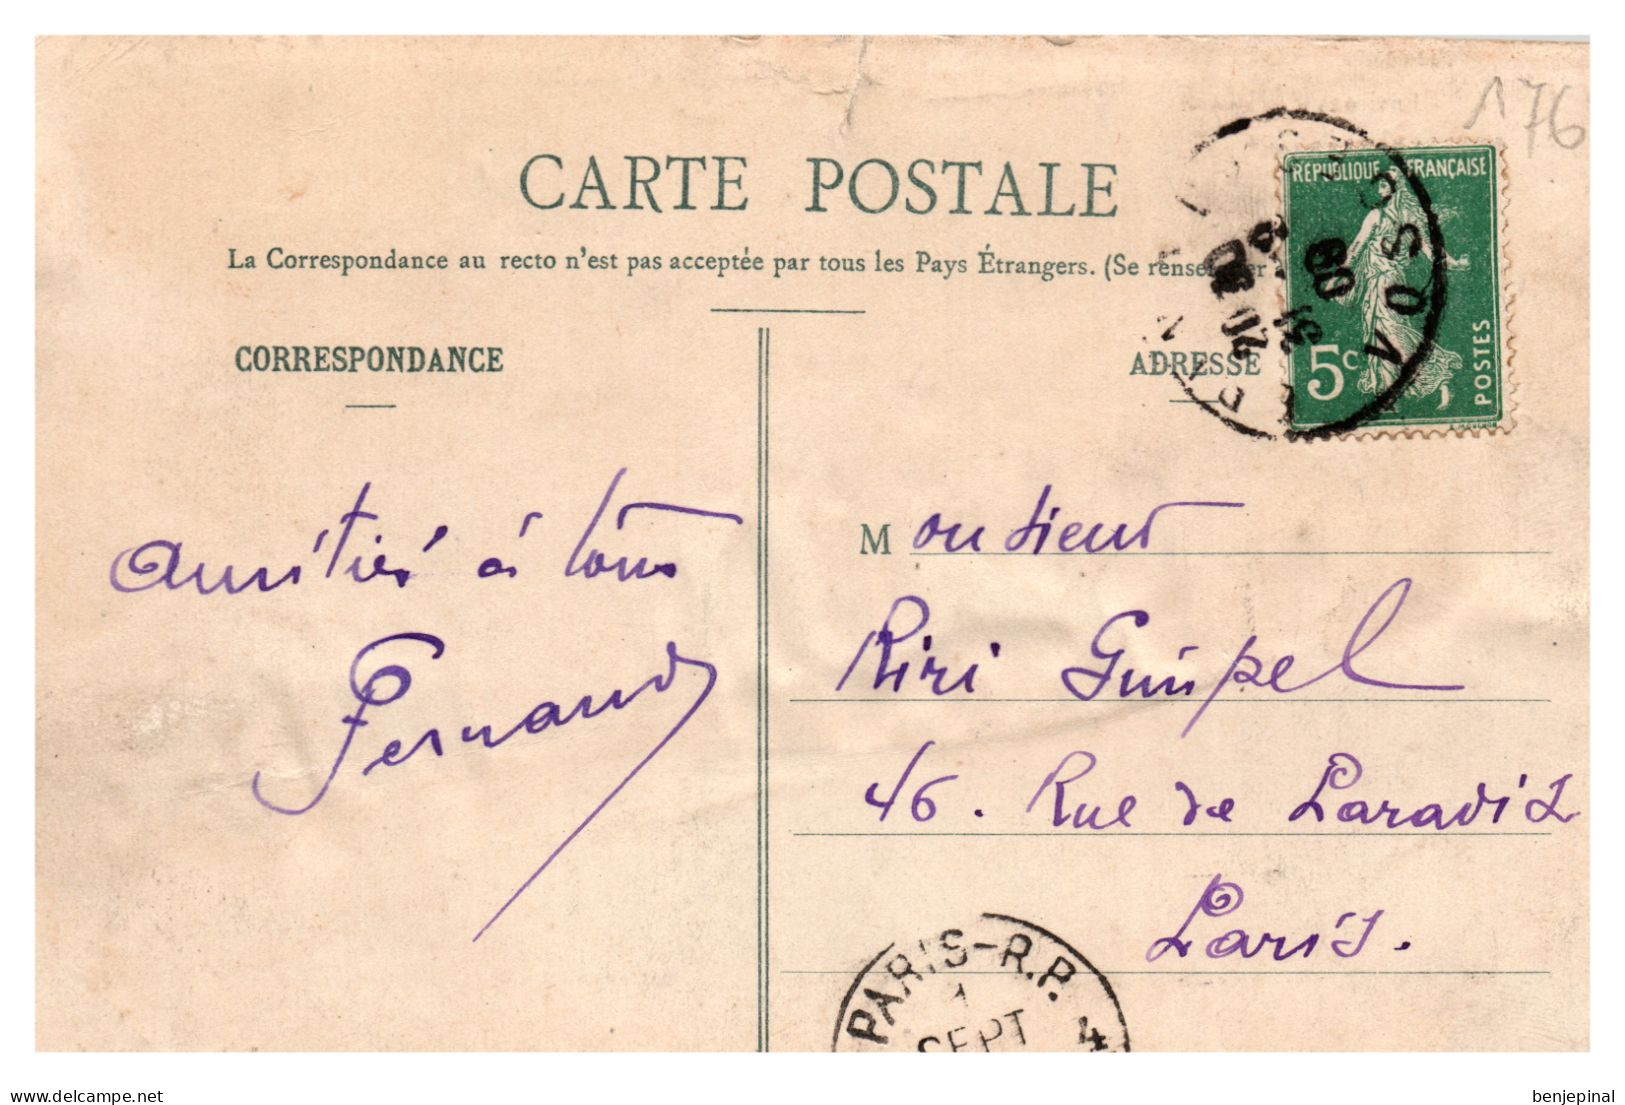 176
CARTE POSTALE
La Correspondance au recto n'est pas acceptée par tous les Pays Étrangers. (Se renseigner
RÉPUBLIQUE FRANÇAISE
5c
POSTES
VOSGES
31
09
CORRESPONDANCE
ADRESSE
Amitiés à tous
Fernand
Monsieur
Riri Guimpel
46. Rue de Paradis
Paris.
PARIS-R.P. 4
1
SEPT
delcampe.net
benjepinal